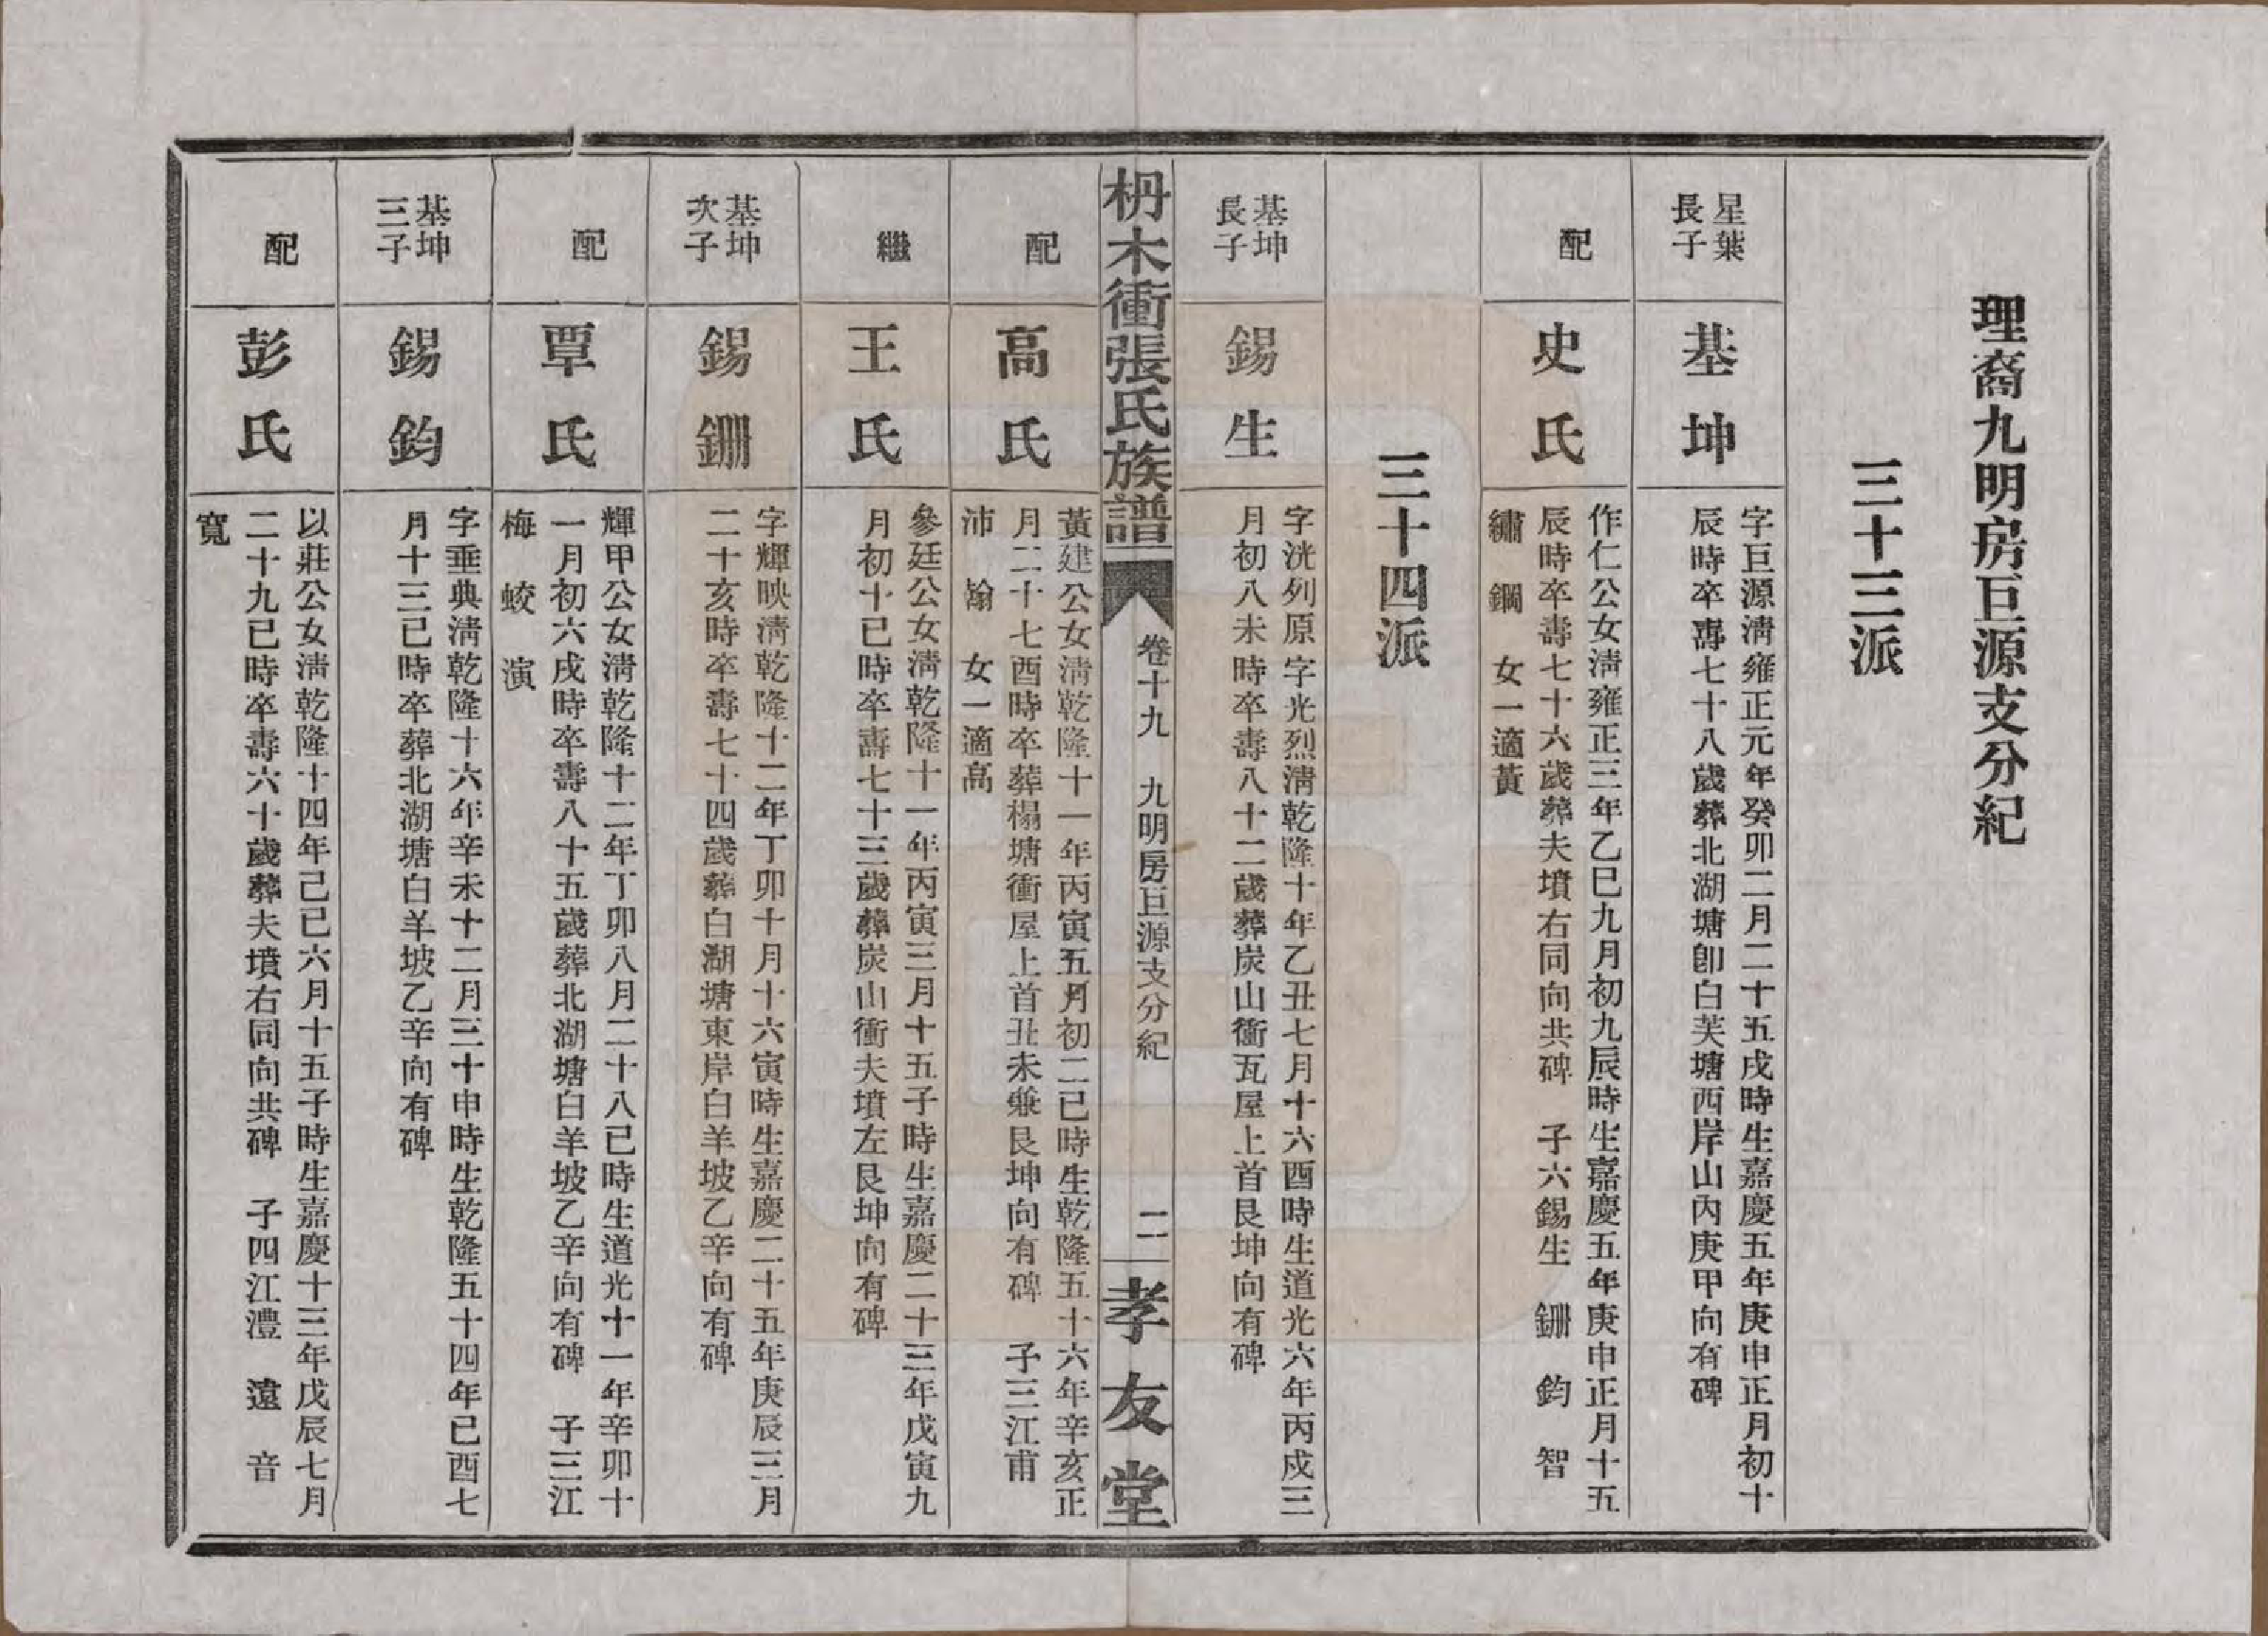 理裔九明房巨源支分紀
三十三派
星葉
長子
基坤
字巨源淸雍正元年癸卯二月二十五戌時生嘉慶五年庚申正月初十
辰時卒壽七十八歲葬北湖塘卽白芙塘西岸山內庚甲向有碑
配
史氏
作仁公女淸雍正三年乙巳九月初九辰時生嘉慶五年庚申正月十五
辰時卒壽七十六歲葬夫墳右同向共碑　子六錫生　鉶　鈞　智
繡　鋼　女一適黃
三十四派
基坤
長子
錫生
字洸列原字光烈淸乾隆十年乙丑七月十六酉時生道光六年丙戌三
月初八未時卒壽八十二歲葬炭山衝瓦屋上首艮坤向有碑
枬木衝張氏族譜
卷十九　九明房巨源支分紀
二
孝友堂
配
高氏
黃建公女淸乾隆十一年丙寅五月初二巳時生乾隆五十六年辛亥正
月二十七酉時卒葬楊塘衝屋上首丑未兼艮坤向有碑　子三江甫
沛　瀚　女一適高
繼
王氏
參廷公女淸乾隆十一年丙寅三月十五子時生嘉慶二十三年戊寅九
月初十巳時卒壽七十三歲葬炭山衝夫墳左艮坤向有碑
基坤
次子
錫鉶
字輝映淸乾隆十二年丁卯十月十六寅時生嘉慶二十五年庚辰三月
二十亥時卒壽七十四歲葬白湖塘東岸白羊坡乙辛向有碑
配
覃氏
輝甲公女淸乾隆十二年丁卯八月二十八巳時生道光十一年辛卯十
一月初六戌時卒壽八十五歲葬北湖塘白羊坡乙辛向有碑　子三江
梅　蛟　演
基坤
三子
錫鈞
字垂典淸乾隆十六年辛未十二月三十申時生乾隆五十四年己酉七
月十三巳時卒葬北湖塘白羊坡乙辛向有碑
配
彭氏
以莊公女淸乾隆十四年己巳六月十五子時生嘉慶十三年戊辰七月
二十九巳時卒壽六十歲葬夫墳右同向共碑　子四江澧　遠　音
寬